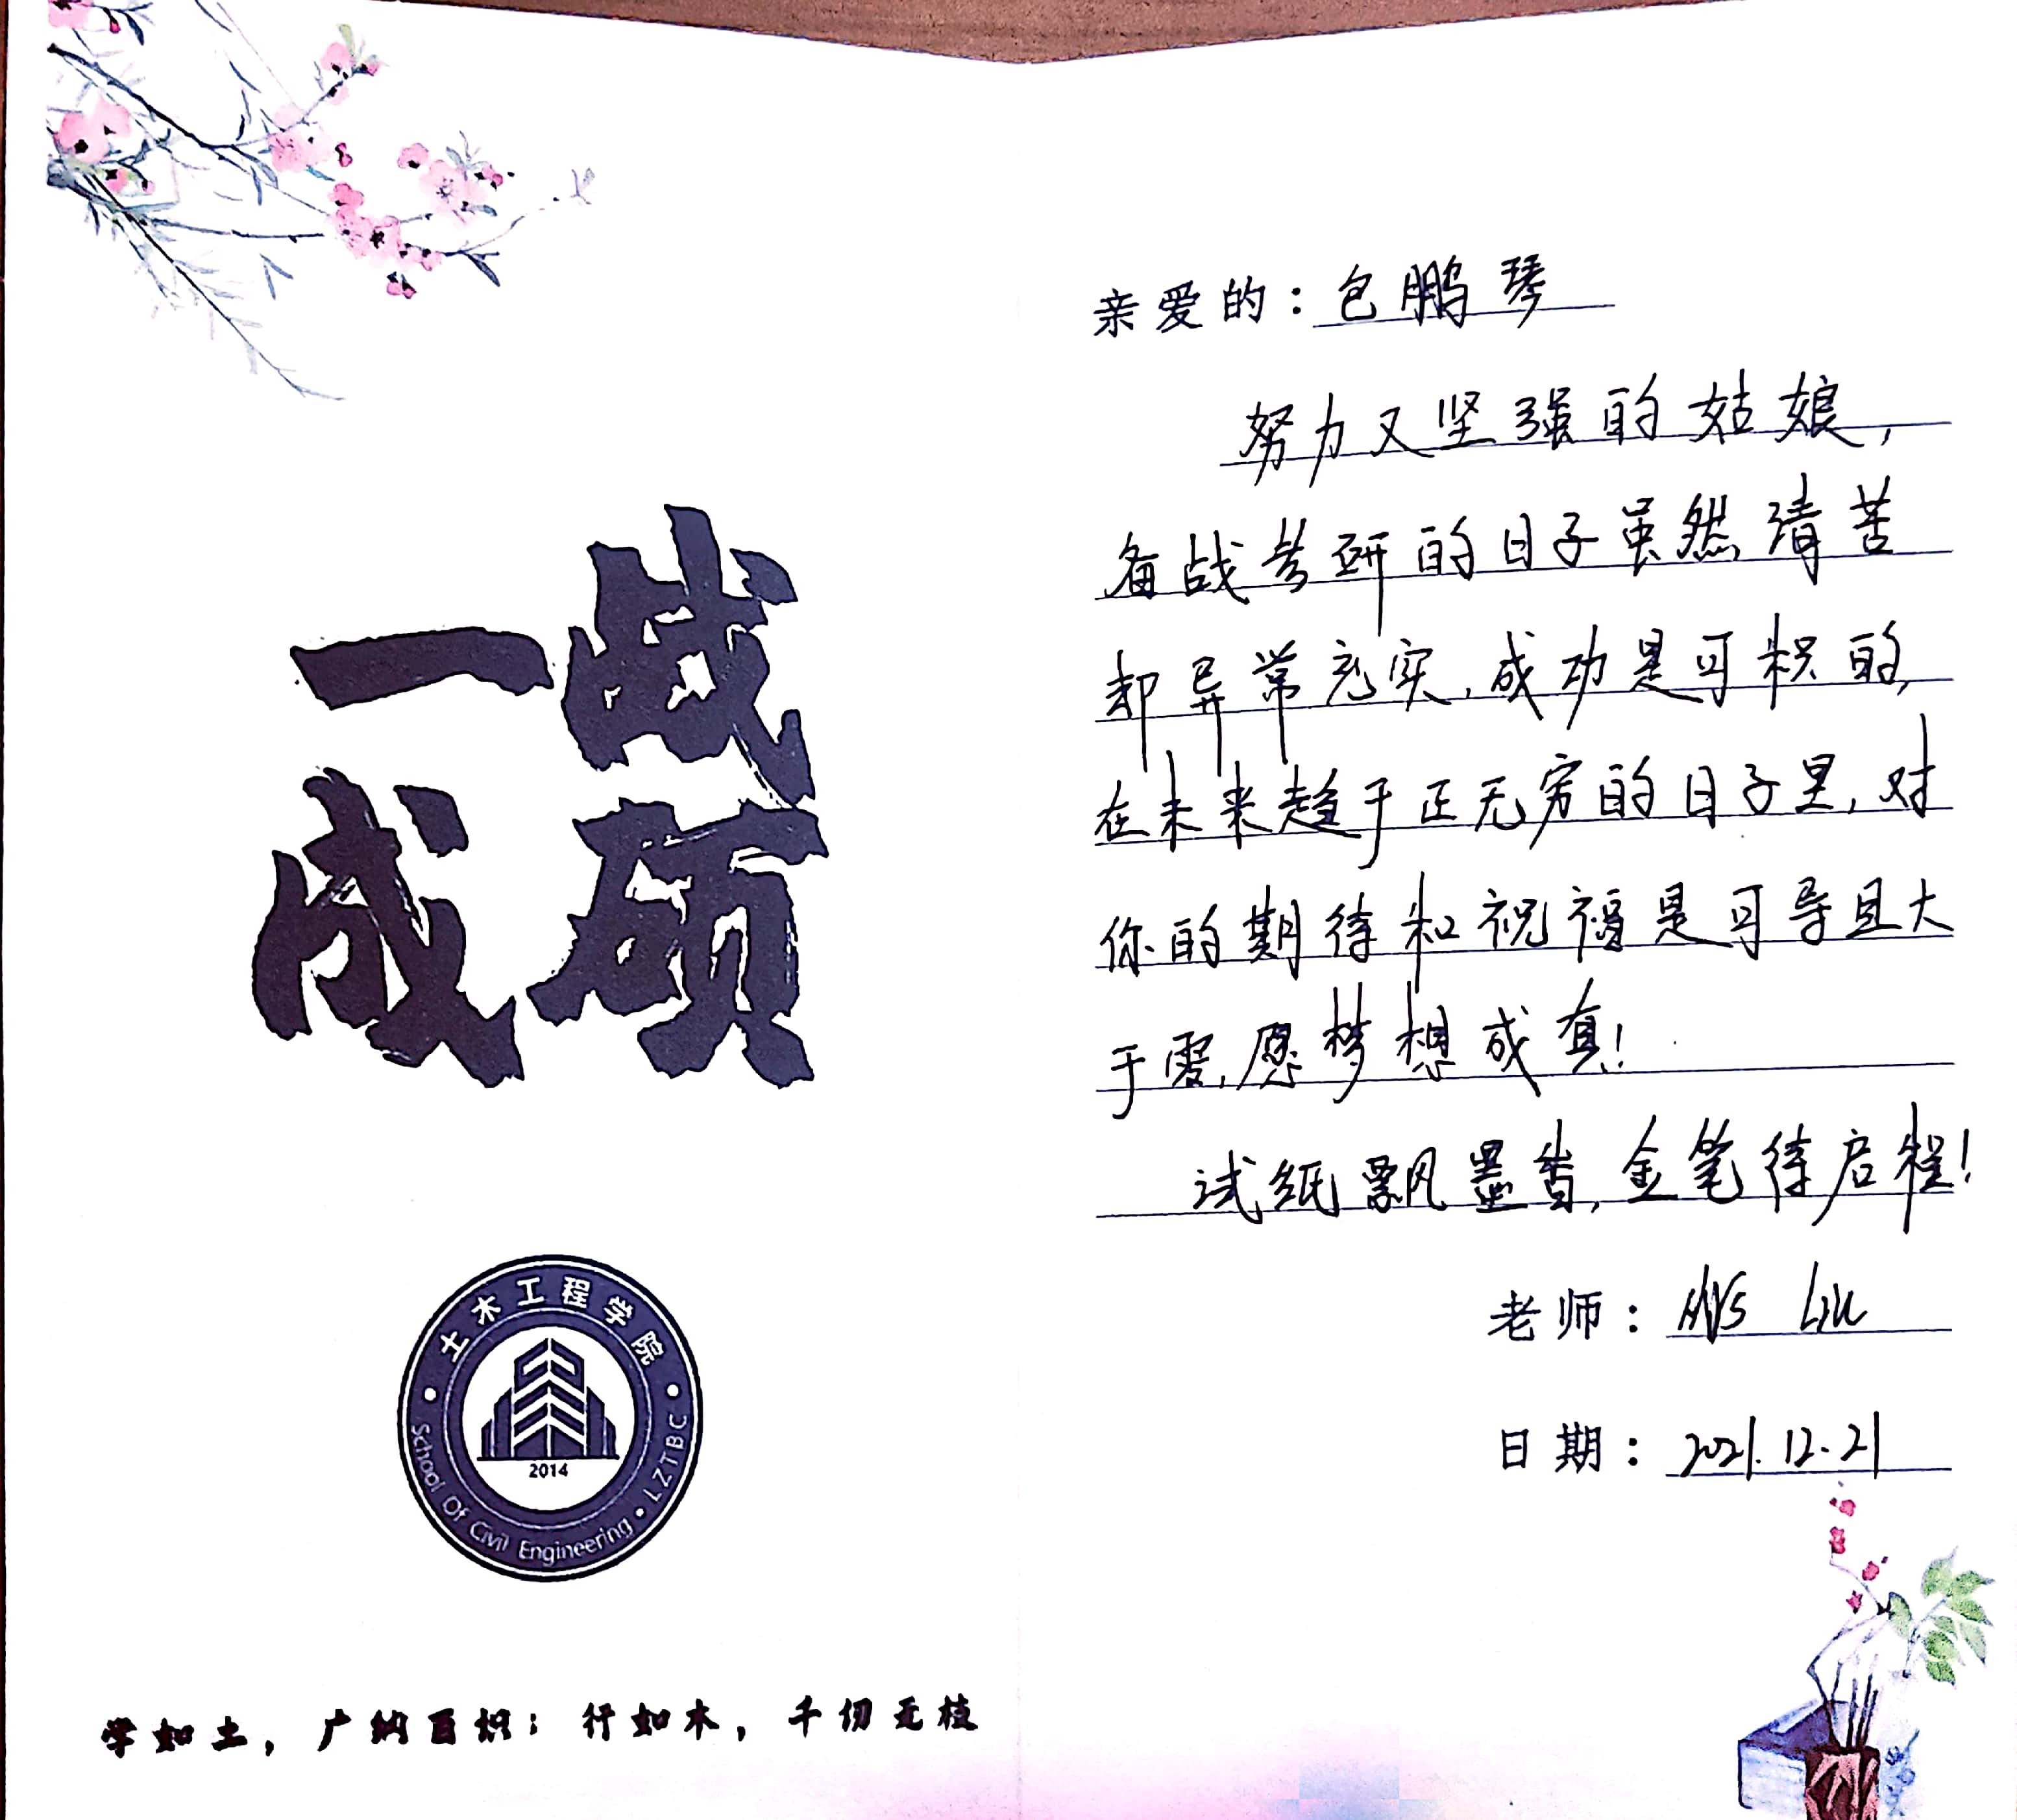 一战
成硕
土木工程学院
School Of Civil Engineering · LZTBC
2014
学如土，广纳百识；行如木，千仞无枝
亲爱的：包鹏琴
努力又坚强的姑娘，
备战考研的日子虽然清苦
却异常充实，成功是可积的，
在未来趋于正无穷的日子里，对
你的期待和祝福是可导且大
于零，愿梦想成真！
试纸飘墨香，金笔待启程！
老师：Ms Liu
日期：2021.12.21